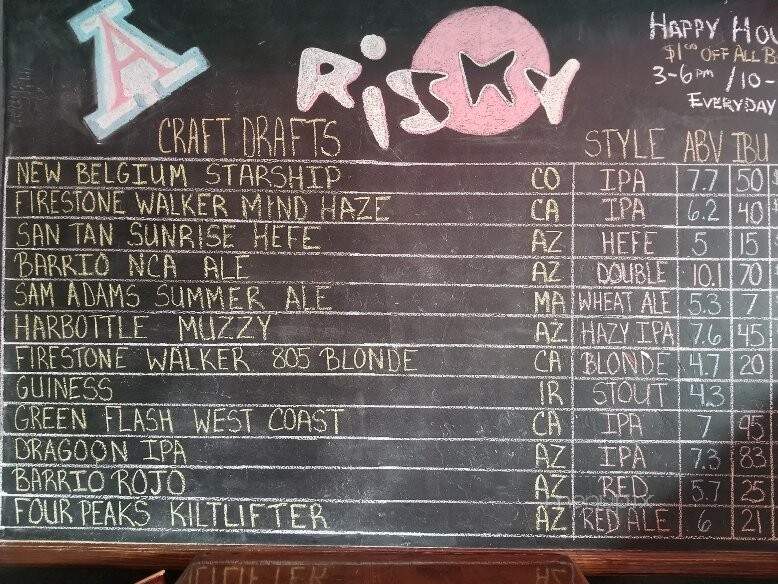 A
RiSKY
HAPPY
$1.00 OFF ALL
3-6pm /10-
EVERYDAY
CRAFT DRAFTS STYLE ABV IBU
NEW BELGIUM STARSHIP CO IPA 7.7 50
FIRESTONE WALKER MIND HAZE CA IPA 6.2 40
SAN TAN SUNRISE HEFE AZ HEFE 5 15
BARRIO NCA ALE AZ DOUBLE 10.1 70
SAM ADAMS SUMMER ALE MA WHEAT ALE 5.3 7
HARBOTTLE MUZZY AZ HAZY IPA 7.6 45
FIRESTONE WALKER 805 BLONDE CA BLONDE 4.7 20
GUINESS IR STOUT 4.3
GREEN FLASH WEST COAST CA IPA 7 95
DRAGOON IPA AZ IPA 7.3 83
BARRIO ROJO AZ RED 5.7 25
FOUR PEAKS KILTLIFTER AZ RED ALE 6 21